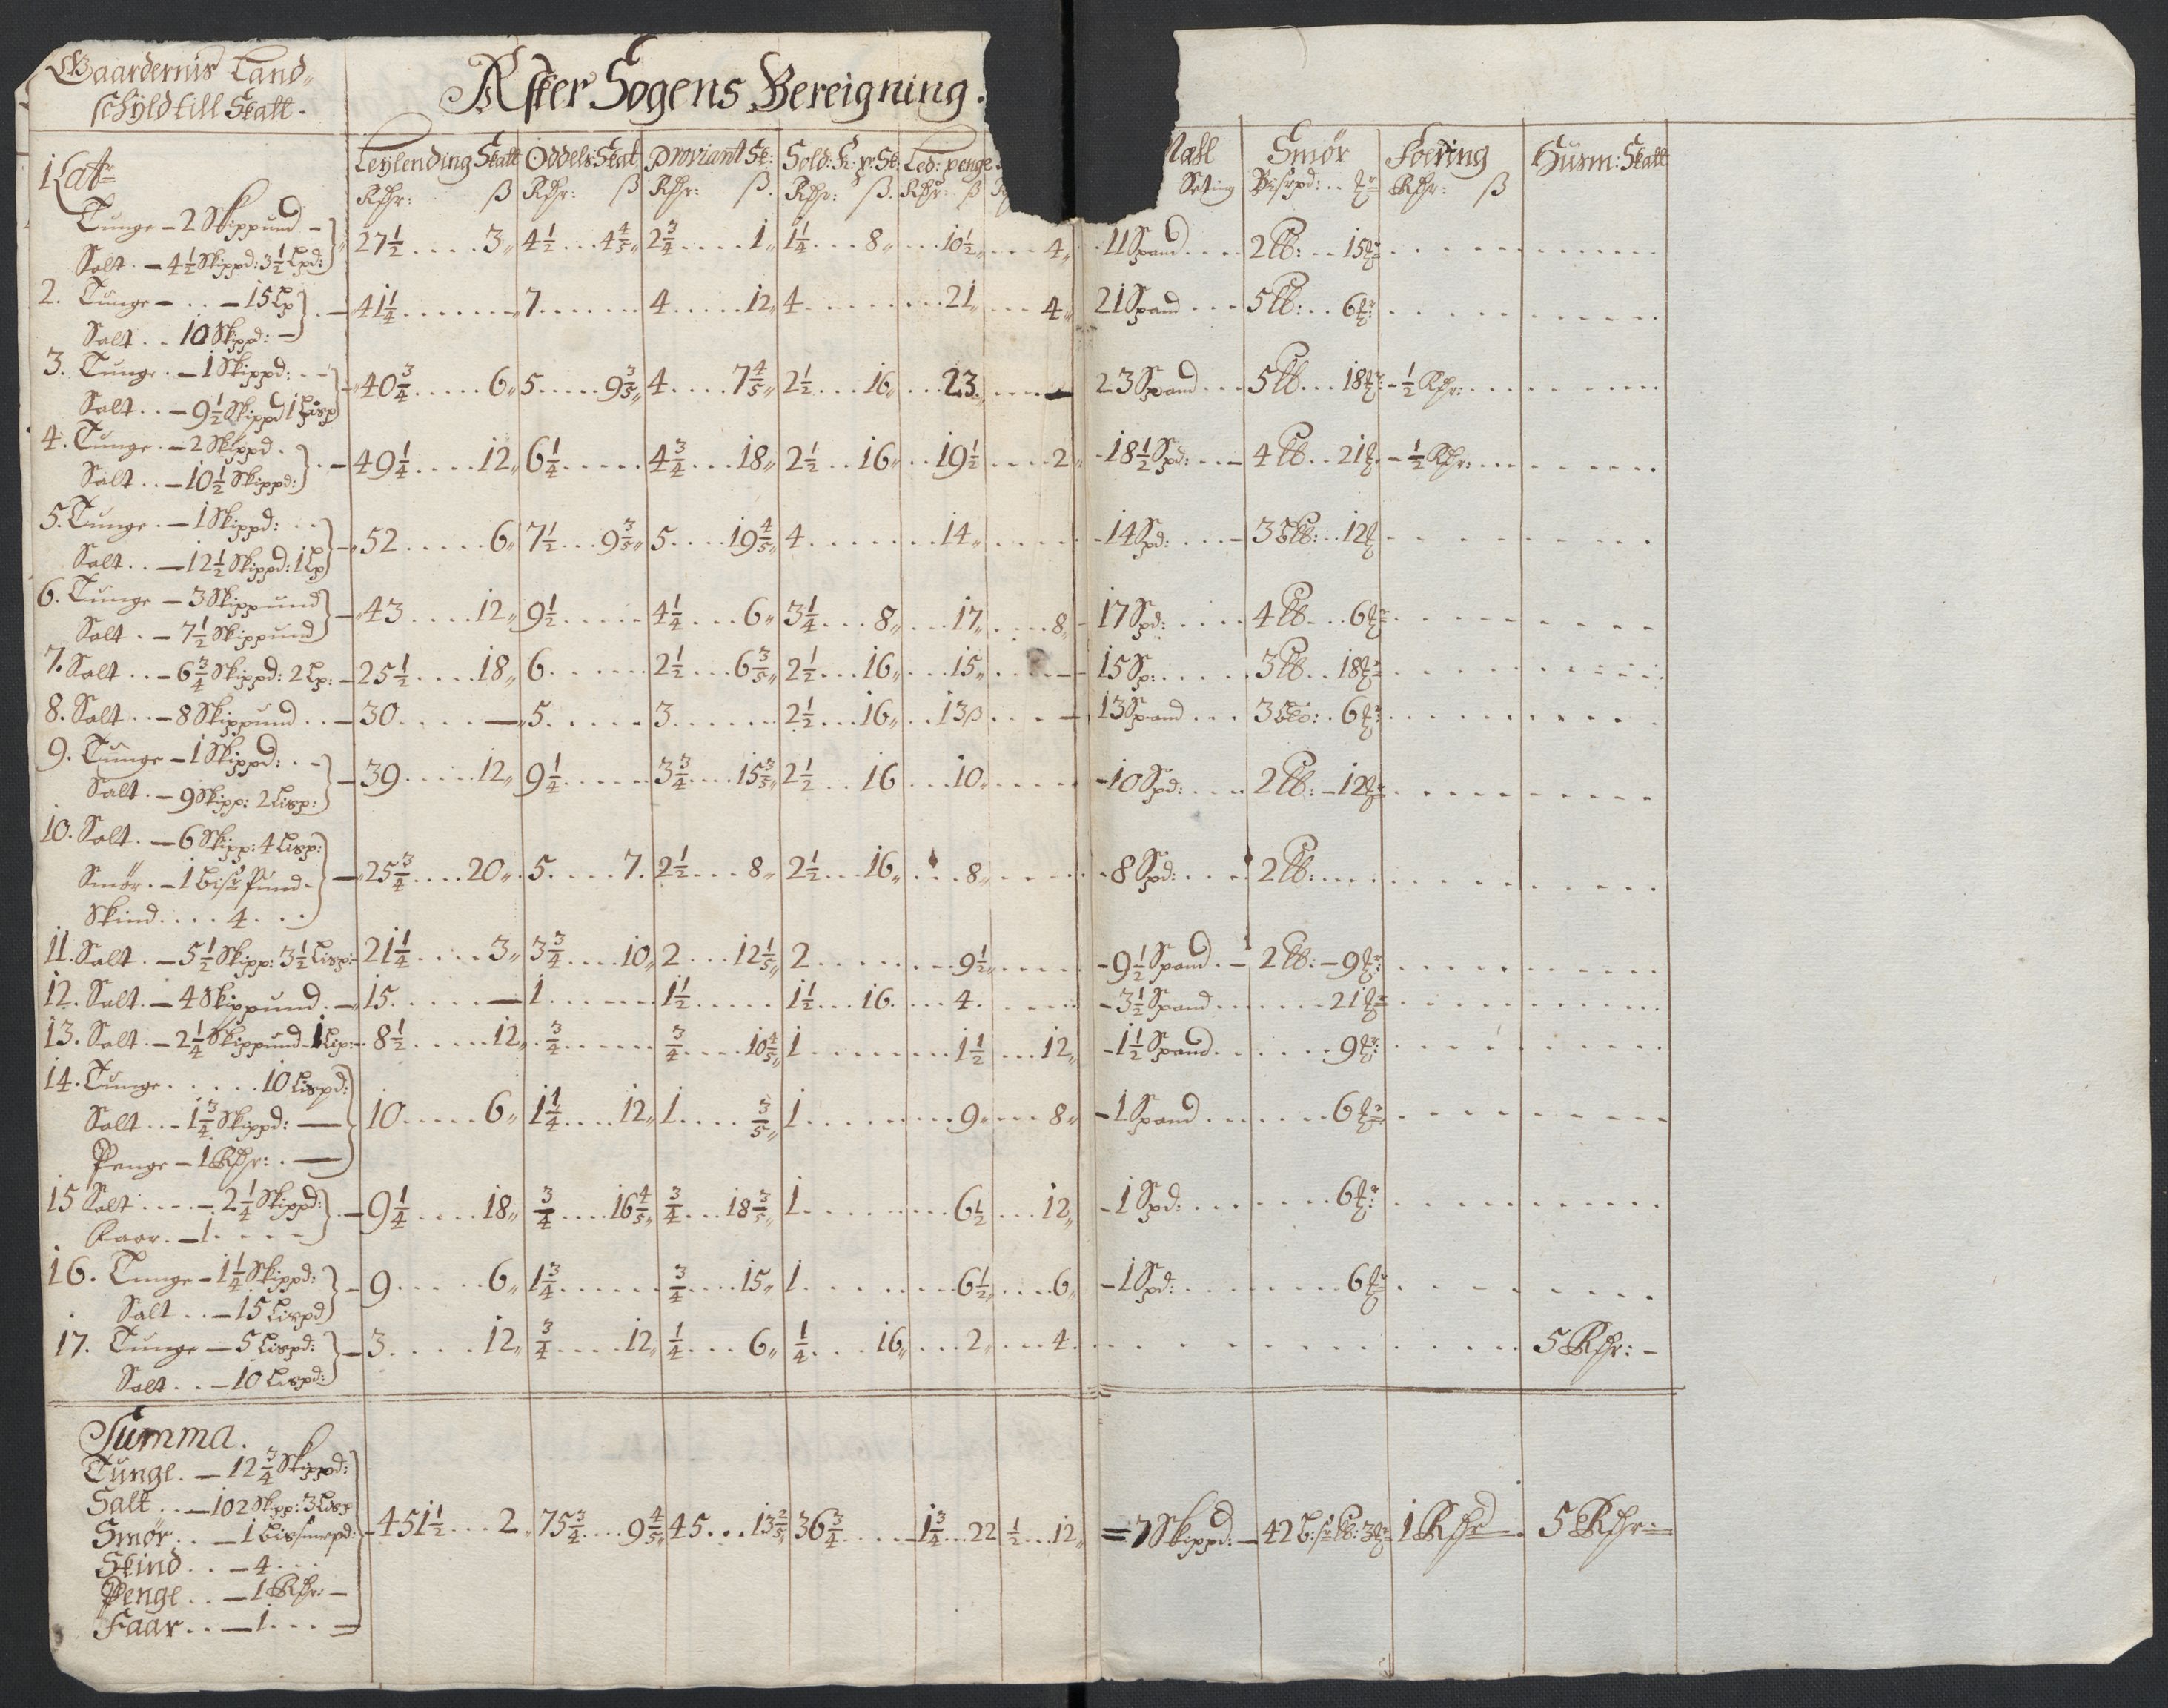 Gaardernis Land-
schÿld till Skatt.
After Sogens Bereigning.
Leÿlending Skatt Oddels Skat Proviant Sk: Sold: K: p: Sk: Led: penge. Smør Foering Husm: Skatt
Rdr: ß Rdr: ß Rdr: ß. Rdr: ß. Rdr: ß Seting Bisrpd: Rdr: ß
1 Latr
Tunge - 2 Skippund -
Salt. - 4½ Skippd: 3½ Lpd:
27½ .... 3 4½ ... 4⅘ 2¾ .... 1 1¼ ... 8 ... 10½ ... 4 - 11 Spand .... 2 ℔: .. 15
2. Tunge - .. - 15 Lp
Salt .. 10 Skippd: -
41¼ ...... 7 ...... 4 .... 12 4 ...... 21 ... 4 21 Spand ... 5 ℔: .. 6
3. Tunge. - 1 Skippd: . -
Salt .. - 9½ Skippd 1 Lisp
40¾ ..... 6 5 .... 9⅗ 4 .... 7⅘ 2½ ... 16 ... 23 .... - 23 Spand ... 5 ℔ ... 18 - ½ Rdr:
4. Tunge. - 2 Skippd.
Salt .. - 10½ Skippd:
49¼ .... 12 6¼ ..... 4¾ ... 18 2½ ... 16 .. 19½ .... 2 - 18½ Spd: .. - 4 ℔ .. 21 - ½ Rdr:
5. Tunge. - 1 Skippd: ..
Salt .. - 12½ Skippd: 1 Lp
52 ..... 6 7½ ... 9⅗ 5 .... 19⅘ 4 ....... 14 - 14 Spd: ... - 3 ℔: .. 12
6. Tunge - 3 Skippund
Salt . - 7½ Skippund
43 .... 12 9½ ..... 4¼ ... 6 3¼ ... 8 ... 17 .... 8 17 Spd: .... 4 ℔ ... 6
7. Salt .. - 6¾ Skippd: 2 Lp: - 25½ .... 18 6 ...... 2½ ... 6⅗ 2½ ... 16 ... 15 .... - 15 Sp: .... 3 ℔ .. 18
8. Salt .. - 8 Skippund .. - 30 .... - 5 ..... 3 ...... 2½ ... 16 .. 13 ß ... - 13 Spand ... 3 ℔: . 6
9. Tunge - 1 Skippd: . -
Salt. - 9 Skipp: 2 Lisp:
39 ..... 12 9¼ ..... 3¾ ... 15⅗ 2½ .. 16 ... 10 - 10 Spd: .... 2 ℔: - 12
10. Salt. - 6 Skipp: 4 Lisp:
Smør. - 1 Bisr Pund -
Skind .... 4 ...
25¾ .... 20 5 .... 7. 2½ ... 8 2½ ... 16 ... 8 - 8 Spd: .... 2 ℔:
11. Salt. - 5½ Skipp: 3½ Lisp: 21¼ .... 3 3¾ .... 10 2 ... 12⅕ 2 ....... 9½ - 9½ Spand . - 2 ℔: - 9
12. Salt. - 4 Skippund. - 15 ..... - 1 ...... 1½ ..... 1½ ... 16. ... 4. - 3½ Spand ...... 21
13. Salt. - 2¼ Skippund - 1 Lip: - 8½ ..... 12 ¾ ...... ¾ .... 10⅘ 1 ....... 1½ ... 12 - 1½ Spand ...... 9
14. Tunge ..... 10 Lispd:
Salt ... 1¾ Skippd: -
Penge - 1 Rdr: . -
10 ..... 6 1¼ .... 12 1 .... ⅗ 1 ....... 9 ... 8 - 1 Spand ...... 6
15 Salt .... - 2¼ Skippd:
Faar. - 1
9¼ .... 18 ¾ .... 16⅘ ¾ ... 18⅗ 1 ....... 6½ ... 12 - 1 Spd: ...... 6
16. Tunge - 1¼ Skippd:
Salt .. - 15 Lispd
9 ..... 6 1¾ ...... ¾ .... 15 1 ....... 6½ .... 6 - 1 Spd: ....... 6
17. Tunge - 5 Lispd:
Salt .. - 10 Lispd:
3 .... 12 ¾ .... 12 ¼ ... 6 ¼ ... 16 ... 2 .... 4. 5 Rdr: -
Summa.
Tunge. - 12¾ Skippd:
Salt .. - 102 Skipp: 3 Lisp
Smør .. - 1 Bissmerpd:
- 451½ ... 2 75¾ .... 9⅘ 45 ... 13⅖ 36¾ .... - 1¾ ... 22 ½ ... 12 = 7 Skippd: - 42 1 Rdr 5 Rdr
Skind .. - 4 ...
Penge .. - 1 Rdr: -
Faar .. - 1 ... =